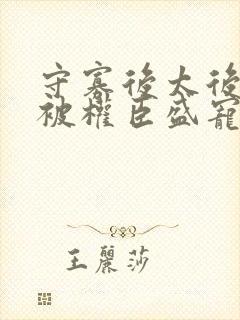 守寡後太後
被權臣盛寵
王麗莎